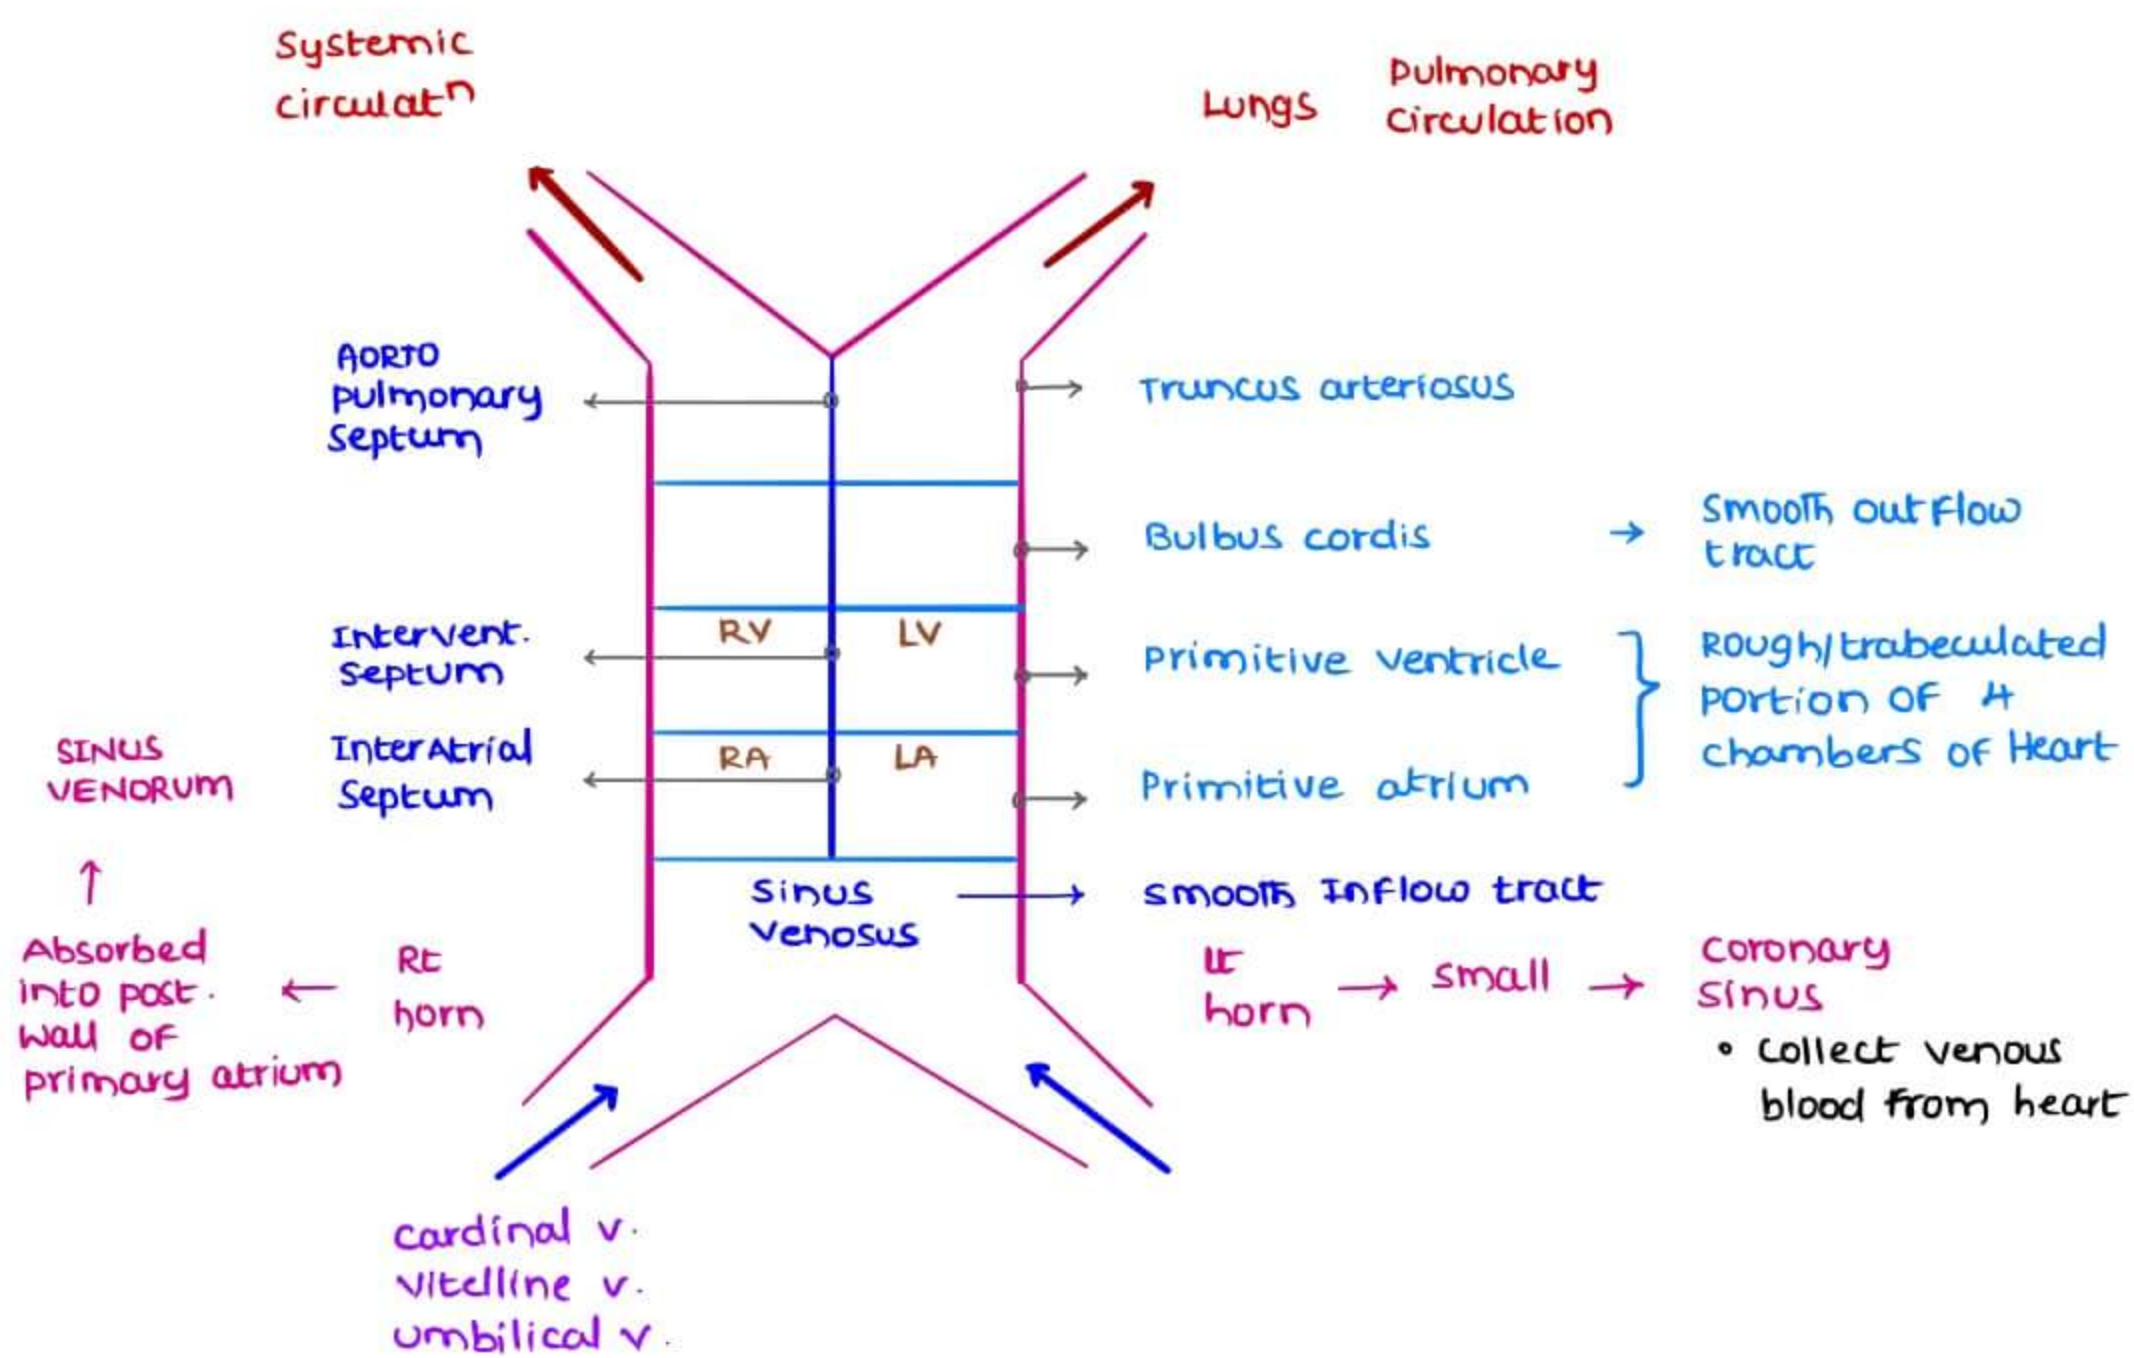 Systemic
circulatn
Lungs
Pulmonary
circulation
AORTO
pulmonary
septum
Truncus arteriosus
Bulbus cordis →
smooth outflow
tract
RV LV
Intervent.
septum
Primitive ventricle
Rough/trabeculated
portion of 4
chambers of Heart
RA LA
InterAtrial
septum
Primitive atrium
SINUS
VENORUM
↑
Absorbed
into post.
wall of
primary atrium
←
Rt
horn
sinus
venosus
smooth Inflow tract
Lt
horn
→ small →
coronary
sinus
• collect venous
blood from heart
cardinal v.
vitelline v.
umbilical v.